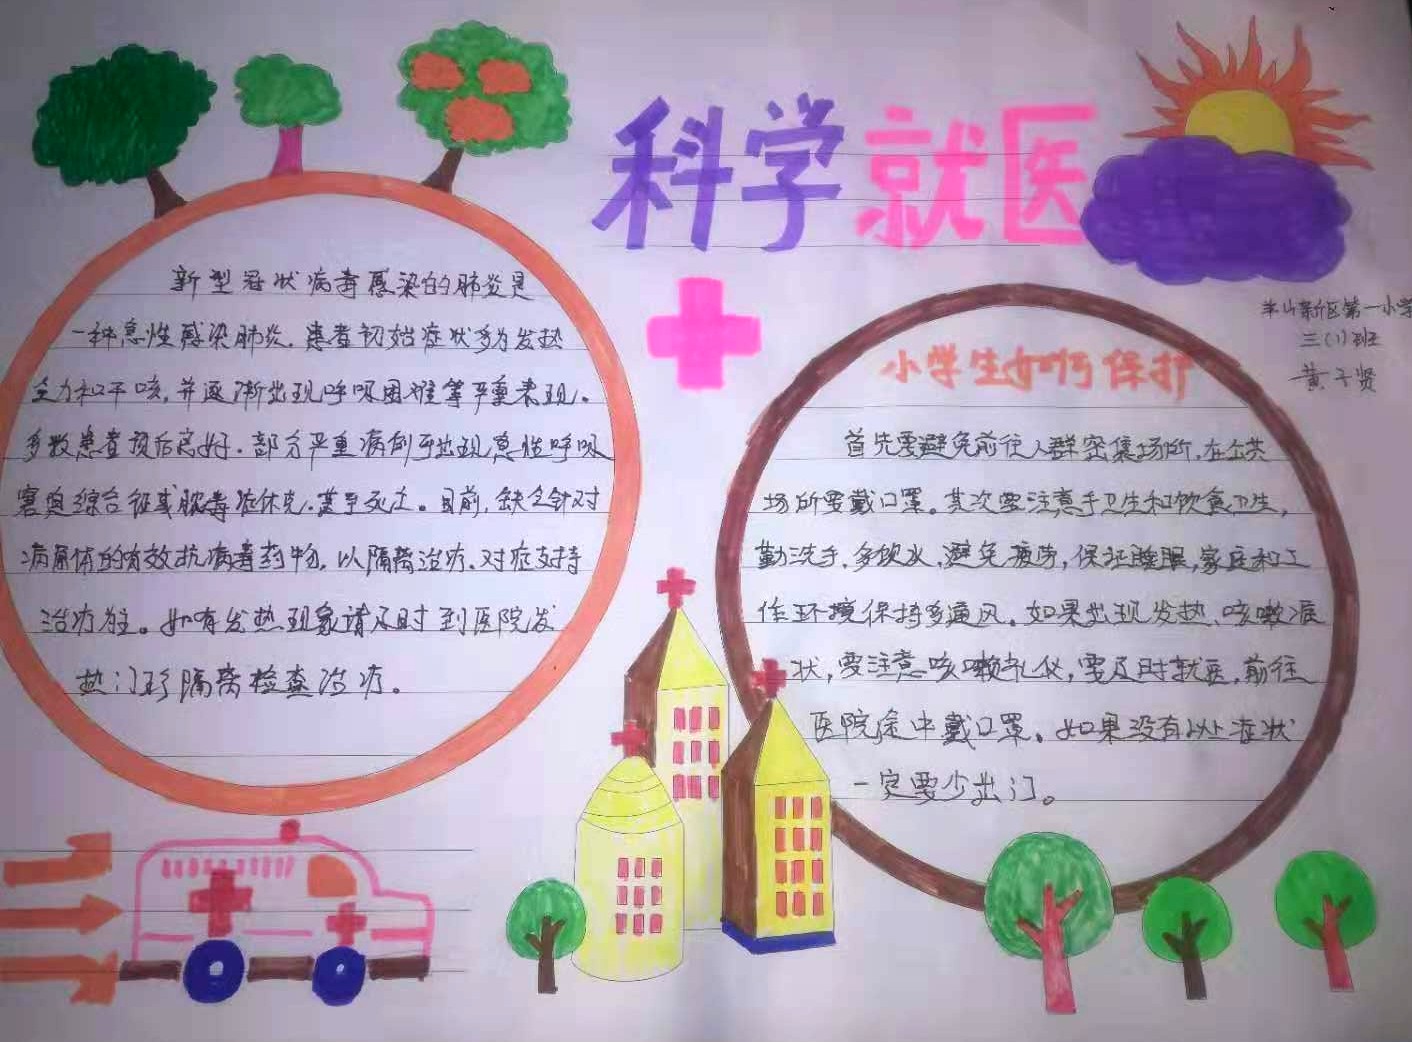 科学就医
新型冠状病毒感染的肺炎是
一种急性感染肺炎.患者初始症状多为发热
乏力和干咳,并逐渐出现呼吸困难等严重表现。
多数患者预后良好.部分严重病例可出现急性呼吸
窘迫综合征或脓毒症休克,甚至死亡。目前,缺乏针对
病原体的有效抗病毒药物,以隔离治疗.对症支持
治疗为主。如有发热现象请及时到医院发
热门诊隔离检查治疗。
半山新区第一小学
三(1)班
黄子贤
小学生如何保护
首先要避免前往人群密集场所,在公共
场所要戴口罩。其次要注意手卫生和饮食卫生,
勤洗手,多饮水,避免疲劳,保证睡眠,家庭和工
作环境保持多通风。如果出现发热、咳嗽症
状,要注意咳嗽礼仪,要及时就医,前往
医院途中戴口罩。如果没有以上症状
一定要少出门。